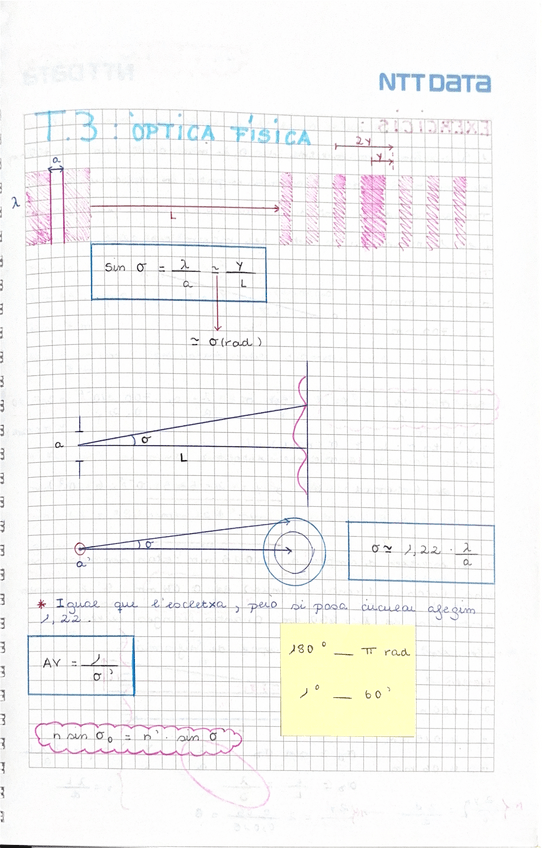 NTT DATA
T.3 : ÒPTICA FÍSICA
EXERCICIS :
2y
y
a
λ
L
sin σ = λ/a ≃ y/L
≃ σ(rad)
a
σ
L
σ
a'
σ ≃ 1,22 · λ/a
* Igual que l'escletxa, però si posa circular afegim
1,22.
AV = 1/σ'
180° — π rad
1° — 60'
n sin σ₀ = n' · sin σ